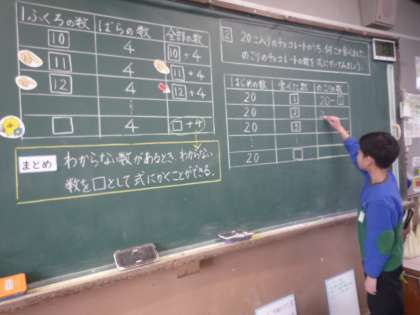 1ふくろの数 ばらの数 全部の数
10 4 10+4
11 4 11+4
12 4 12+4
□ 4 □+4
まとめ
わからない数があるとき、わからない
数を□として式にかくことができる。
2 20こ入りのチョコレートから、何こか食べました。
のこりのチョコレートの数を式に
はじめの数 食べた数 のこりの数
20 1 20-1
20 2
20 3
20 □